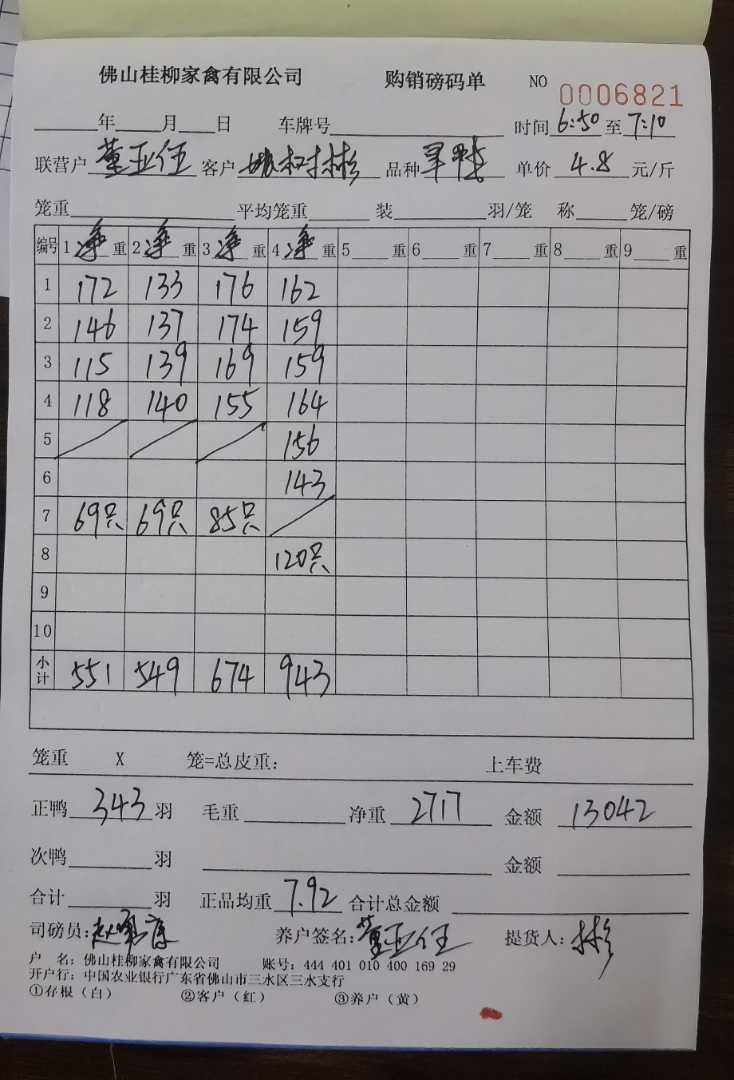 佛山桂柳家禽有限公司 购销磅码单 NO 0006821
年 月 日 车牌号 时间 6:50 至 7:10
联营户 董亚伍 客户 树彬 品种 单价 4.8 元/斤
笼重 平均笼重 装 羽/笼 称 笼/磅
编号 1 净 重 2 净 重 3 净 重 4 净 重 5 重 6 重 7 重 8 重 9 重
1 172 133 176 162
2 146 137 174 159
3 115 139 169 159
4 118 140 155 164
5 156
6 143
7 69只 69只 85只
8 120只
9
10
小计 551 549 674 943
笼重 X 笼=总皮重: 上车费
正鸭 343 羽 毛重 净重 2717 金额 13042
次鸭 羽 金额
合计 羽 正品均重 7.92 合计总金额
司磅员: 养户签名: 董亚伍 提货人: 彬
户 名: 佛山桂柳家禽有限公司 账号: 444 401 010 400 169 29
开户行: 中国农业银行广东省佛山市三水区三水支行
①存根（白） ②客户（红） ③养户（黄）